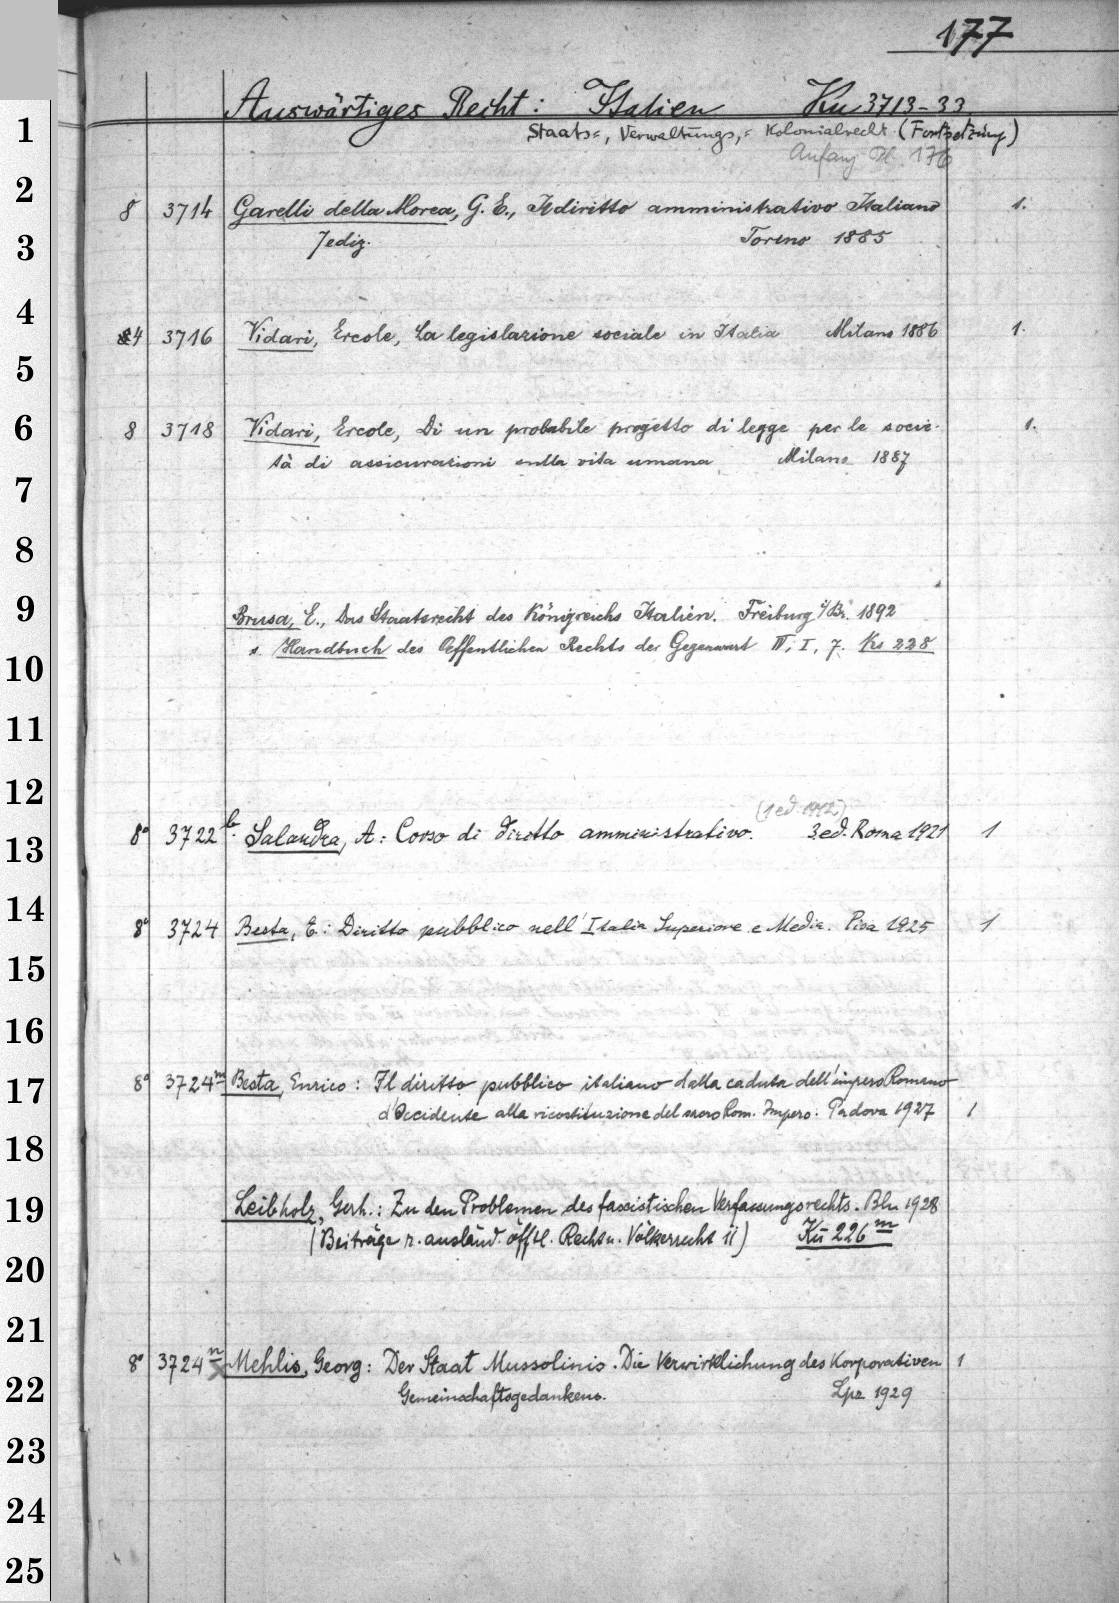 177
Auswärtiges Recht: Italien Ku 3713-33
Staats=, Verwaltungs,= Kolonialrecht (Fortsetzung)
Anfang Bl. 176
8 3714 Garelli della Morea, G. E., Il diritto amministrativo Italiano 1.
7 ediz. Torino 1885
4 3716 Vidari, Ercole, La legislazione sociale in Italia Milano 1886 1.
8 3718 Vidari, Ercole, Di un probabile progetto di legge per le socie- 1.
tà di assicurazioni sulla vita umana Milano 1887
Brusa, E., Das Staatsrecht des Königreichs Italien. Freiburg i/Br. 1892
s. Handbuch des Oeffentlichen Rechts der Gegenwart IV, I, 7. Ks 228
(1 ed. 1912)
8° 3722 b. Salandra, A: Corso di diritto amministrativo. 3 ed. Roma 1921 1
8° 3724 Besta, E.: Diritto pubblico nell'Italia Superiore e Media. Pisa 1925 1
8° 3724 m Besta, Enrico: Il diritto pubblico italiano dalla caduta dell'impero Romano
d'Occidente alla ricostituzione del sacro Rom. Impero. Padova 1927 1
Leibholz, Gerh.: Zu den Problemen des fascistischen Verfassungsrechts. Bln 1928
(Beiträge z. ausländ. öfftl. Recht u. Völkerrecht 11) Kü 226 m
8° 3724 n Mehlis, Georg: Der Staat Mussolinis. Die Verwirklichung des Korporativen 1
Gemeinschaftsgedankens. Lpz 1929
1
2
3
4
5
6
7
8
9
10
11
12
13
14
15
16
17
18
19
20
21
22
23
24
25